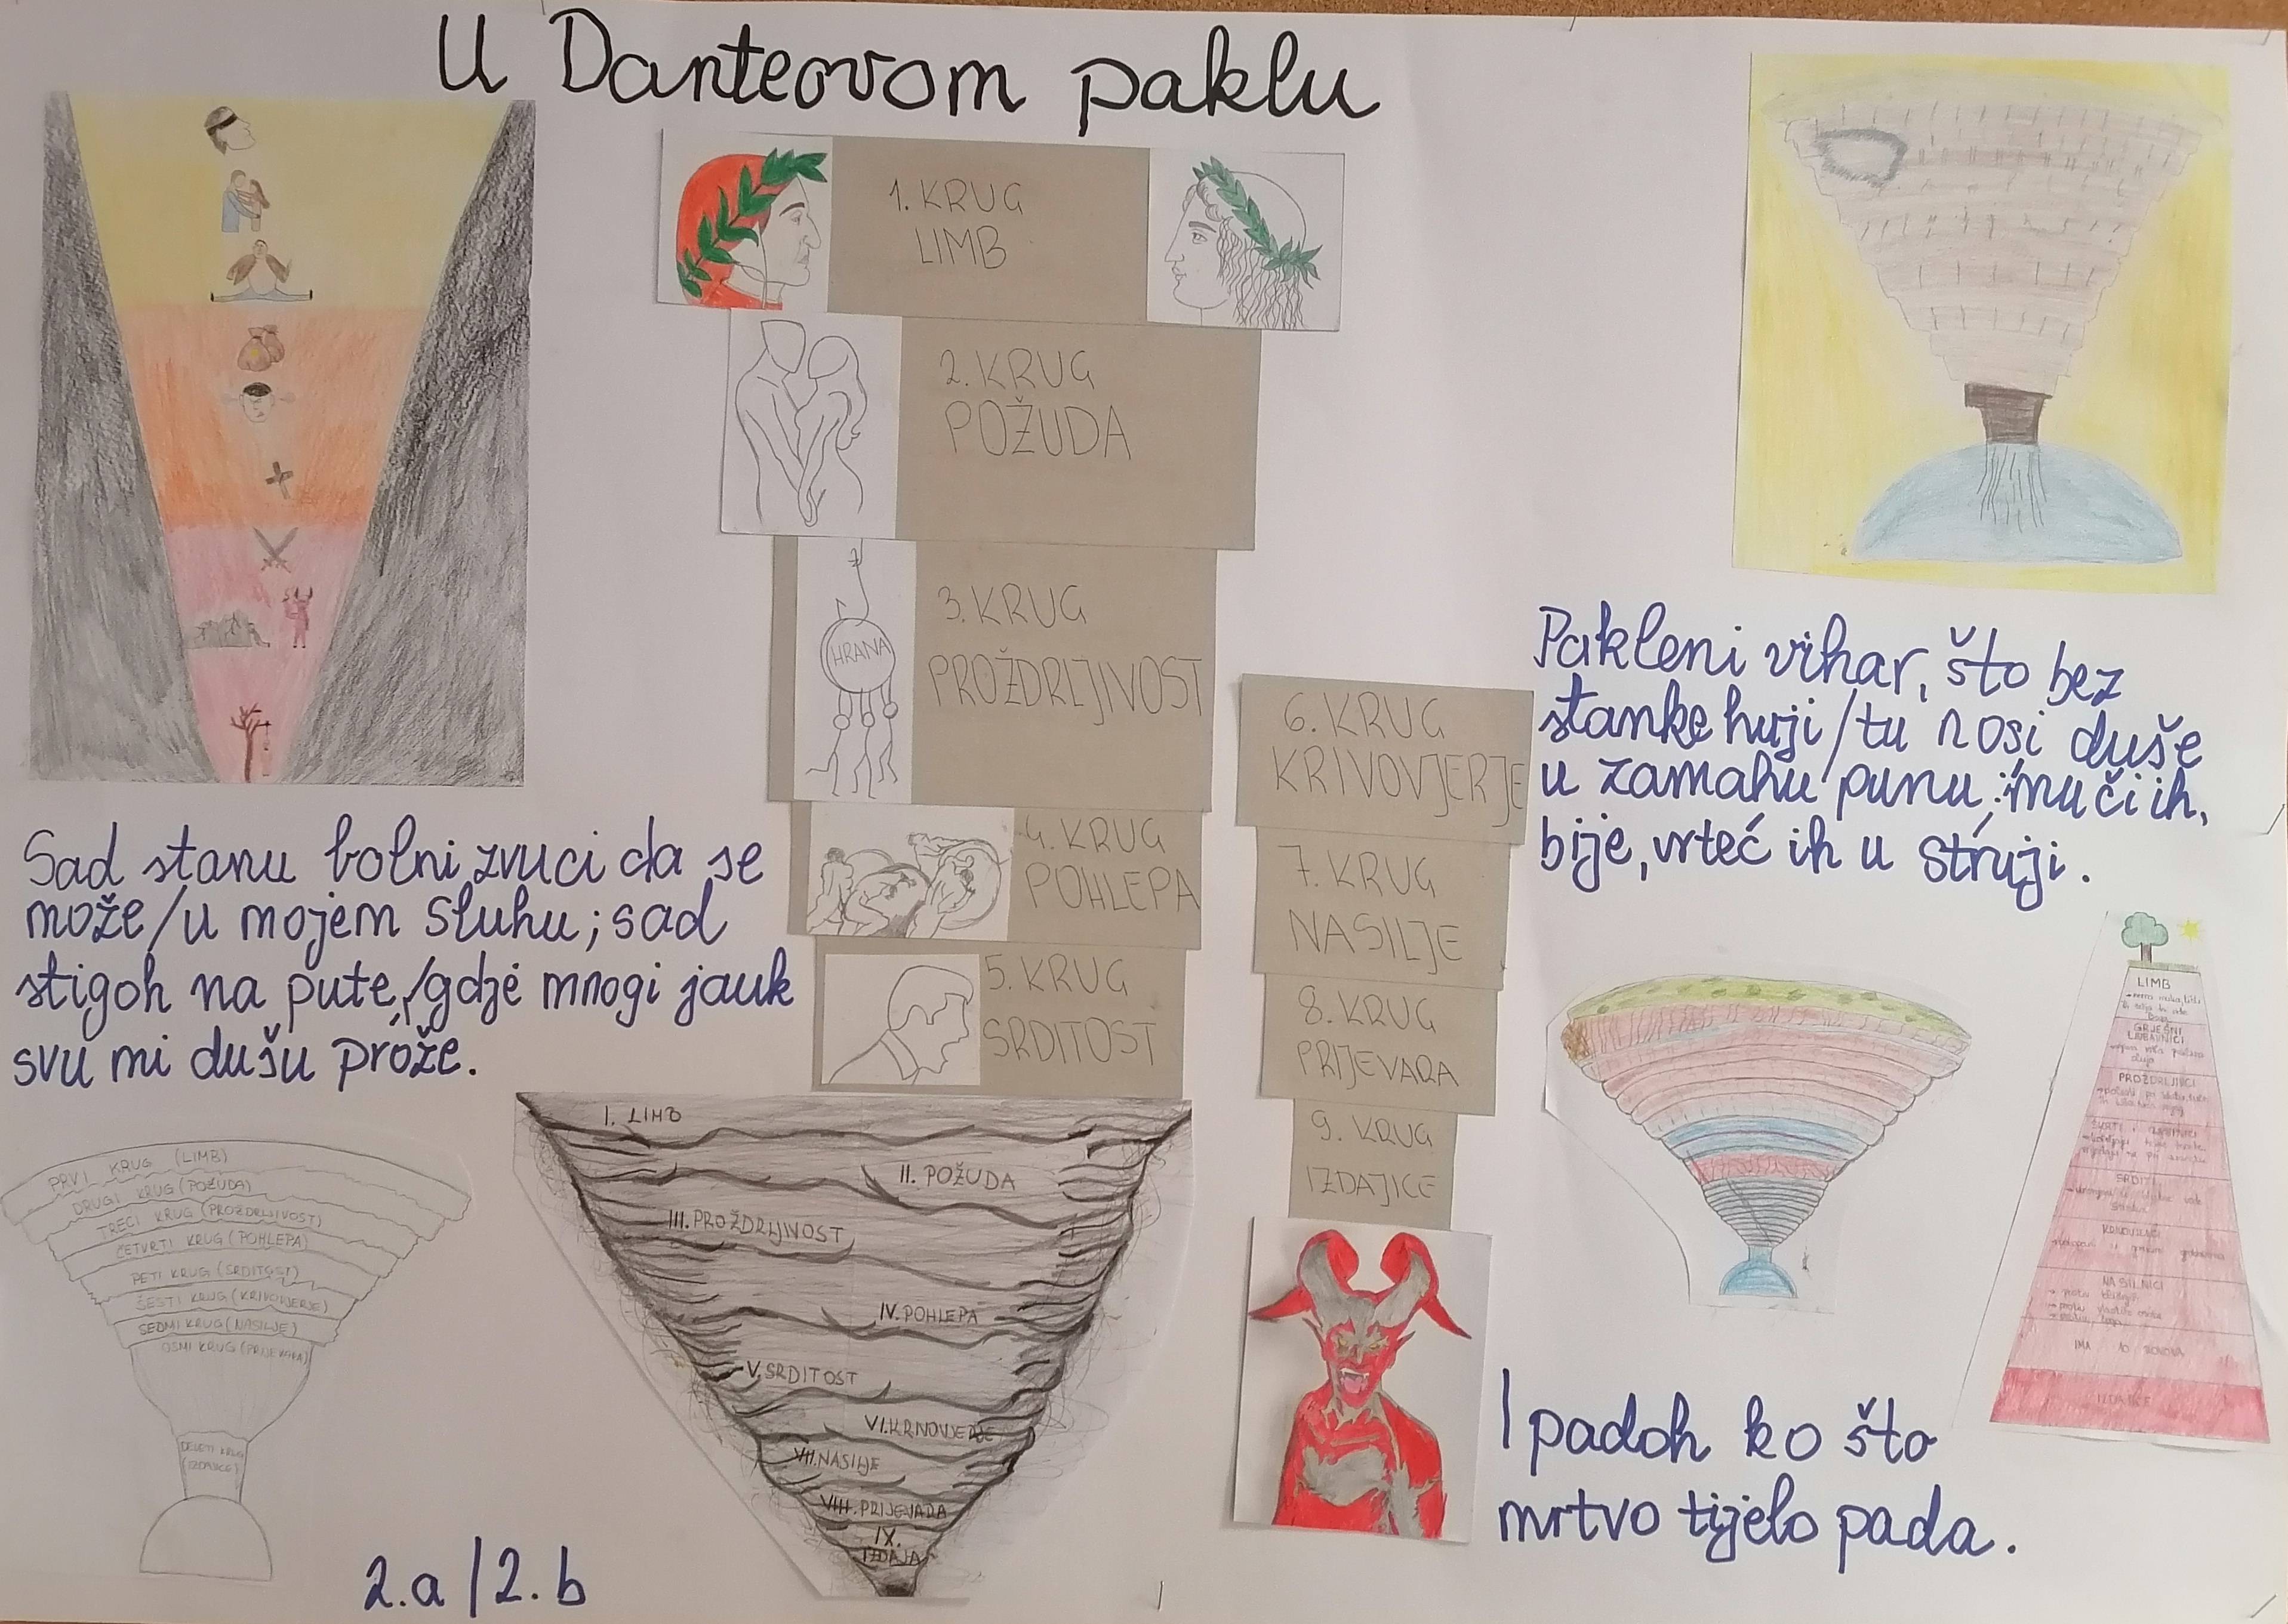 U Danteovom paklu
1. KRUG
LIMB
2. KRUG
POŽUDA
3. KRUG
PROŽDRLJIVOST
HRANA
4. KRUG
POHLEPA
5. KRUG
SRDITOST
6. KRUG
KRIVOVJERJE
7. KRUG
NASILJE
8. KRUG
PRIJEVARA
9. KRUG
IZDAJICE
Sad stanu bolni zvuci da se
može/u mojem sluhu; sad
stigoh na pute,/gdje mnogi jauk
svu mi dušu prože.
Pakleni vihar, što bez
stanke huji/tu nosi duše
u zamahu punu: muči ih,
bije, vrteć ih u struji.
PRVI KRUG (LIMB)
DRUGI KRUG (POŽUDA)
TREĆI KRUG (PROŽDRLJIVOST)
ČETVRTI KRUG (POHLEPA)
PETI KRUG (SRDITOST)
ŠESTI KRUG (KRIVOVJERJE)
SEDMI KRUG (NASILJE)
OSMI KRUG (PRIJEVARA)
DEVETI KRUG
(IZDAJICE)
I. LIMB
II. POŽUDA
III. PROŽDRLJIVOST
IV. POHLEPA
V. SRDITOST
VI. KRIVOVJERJE
VII. NASILJE
VIII. PRIJEVARA
IX.
IZDAJA
LIMB
GRJEŠNI
LJUBAVNICI
PROŽDRLJIVCI
SRDITI
NASILNICI
IMA 10
IZDAJICE
I padoh ko što
mrtvo tijelo pada.
2.a/2.b